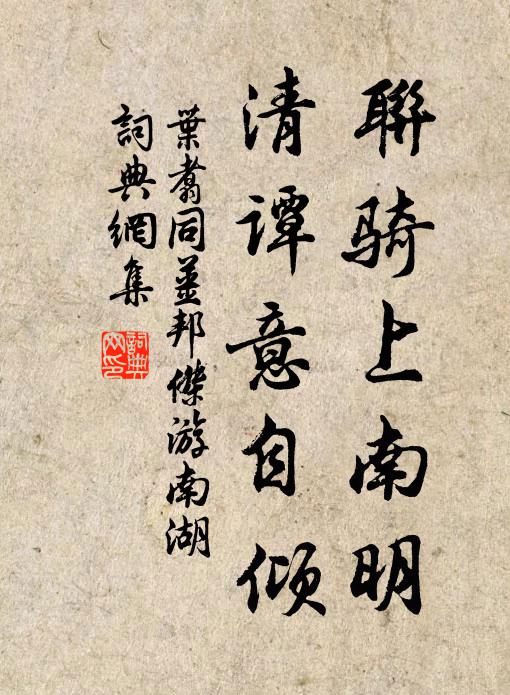 聯騎上南明
清譚意自傾
葉翥同姜邦傑游南湖
詞典網集
詞典
网印